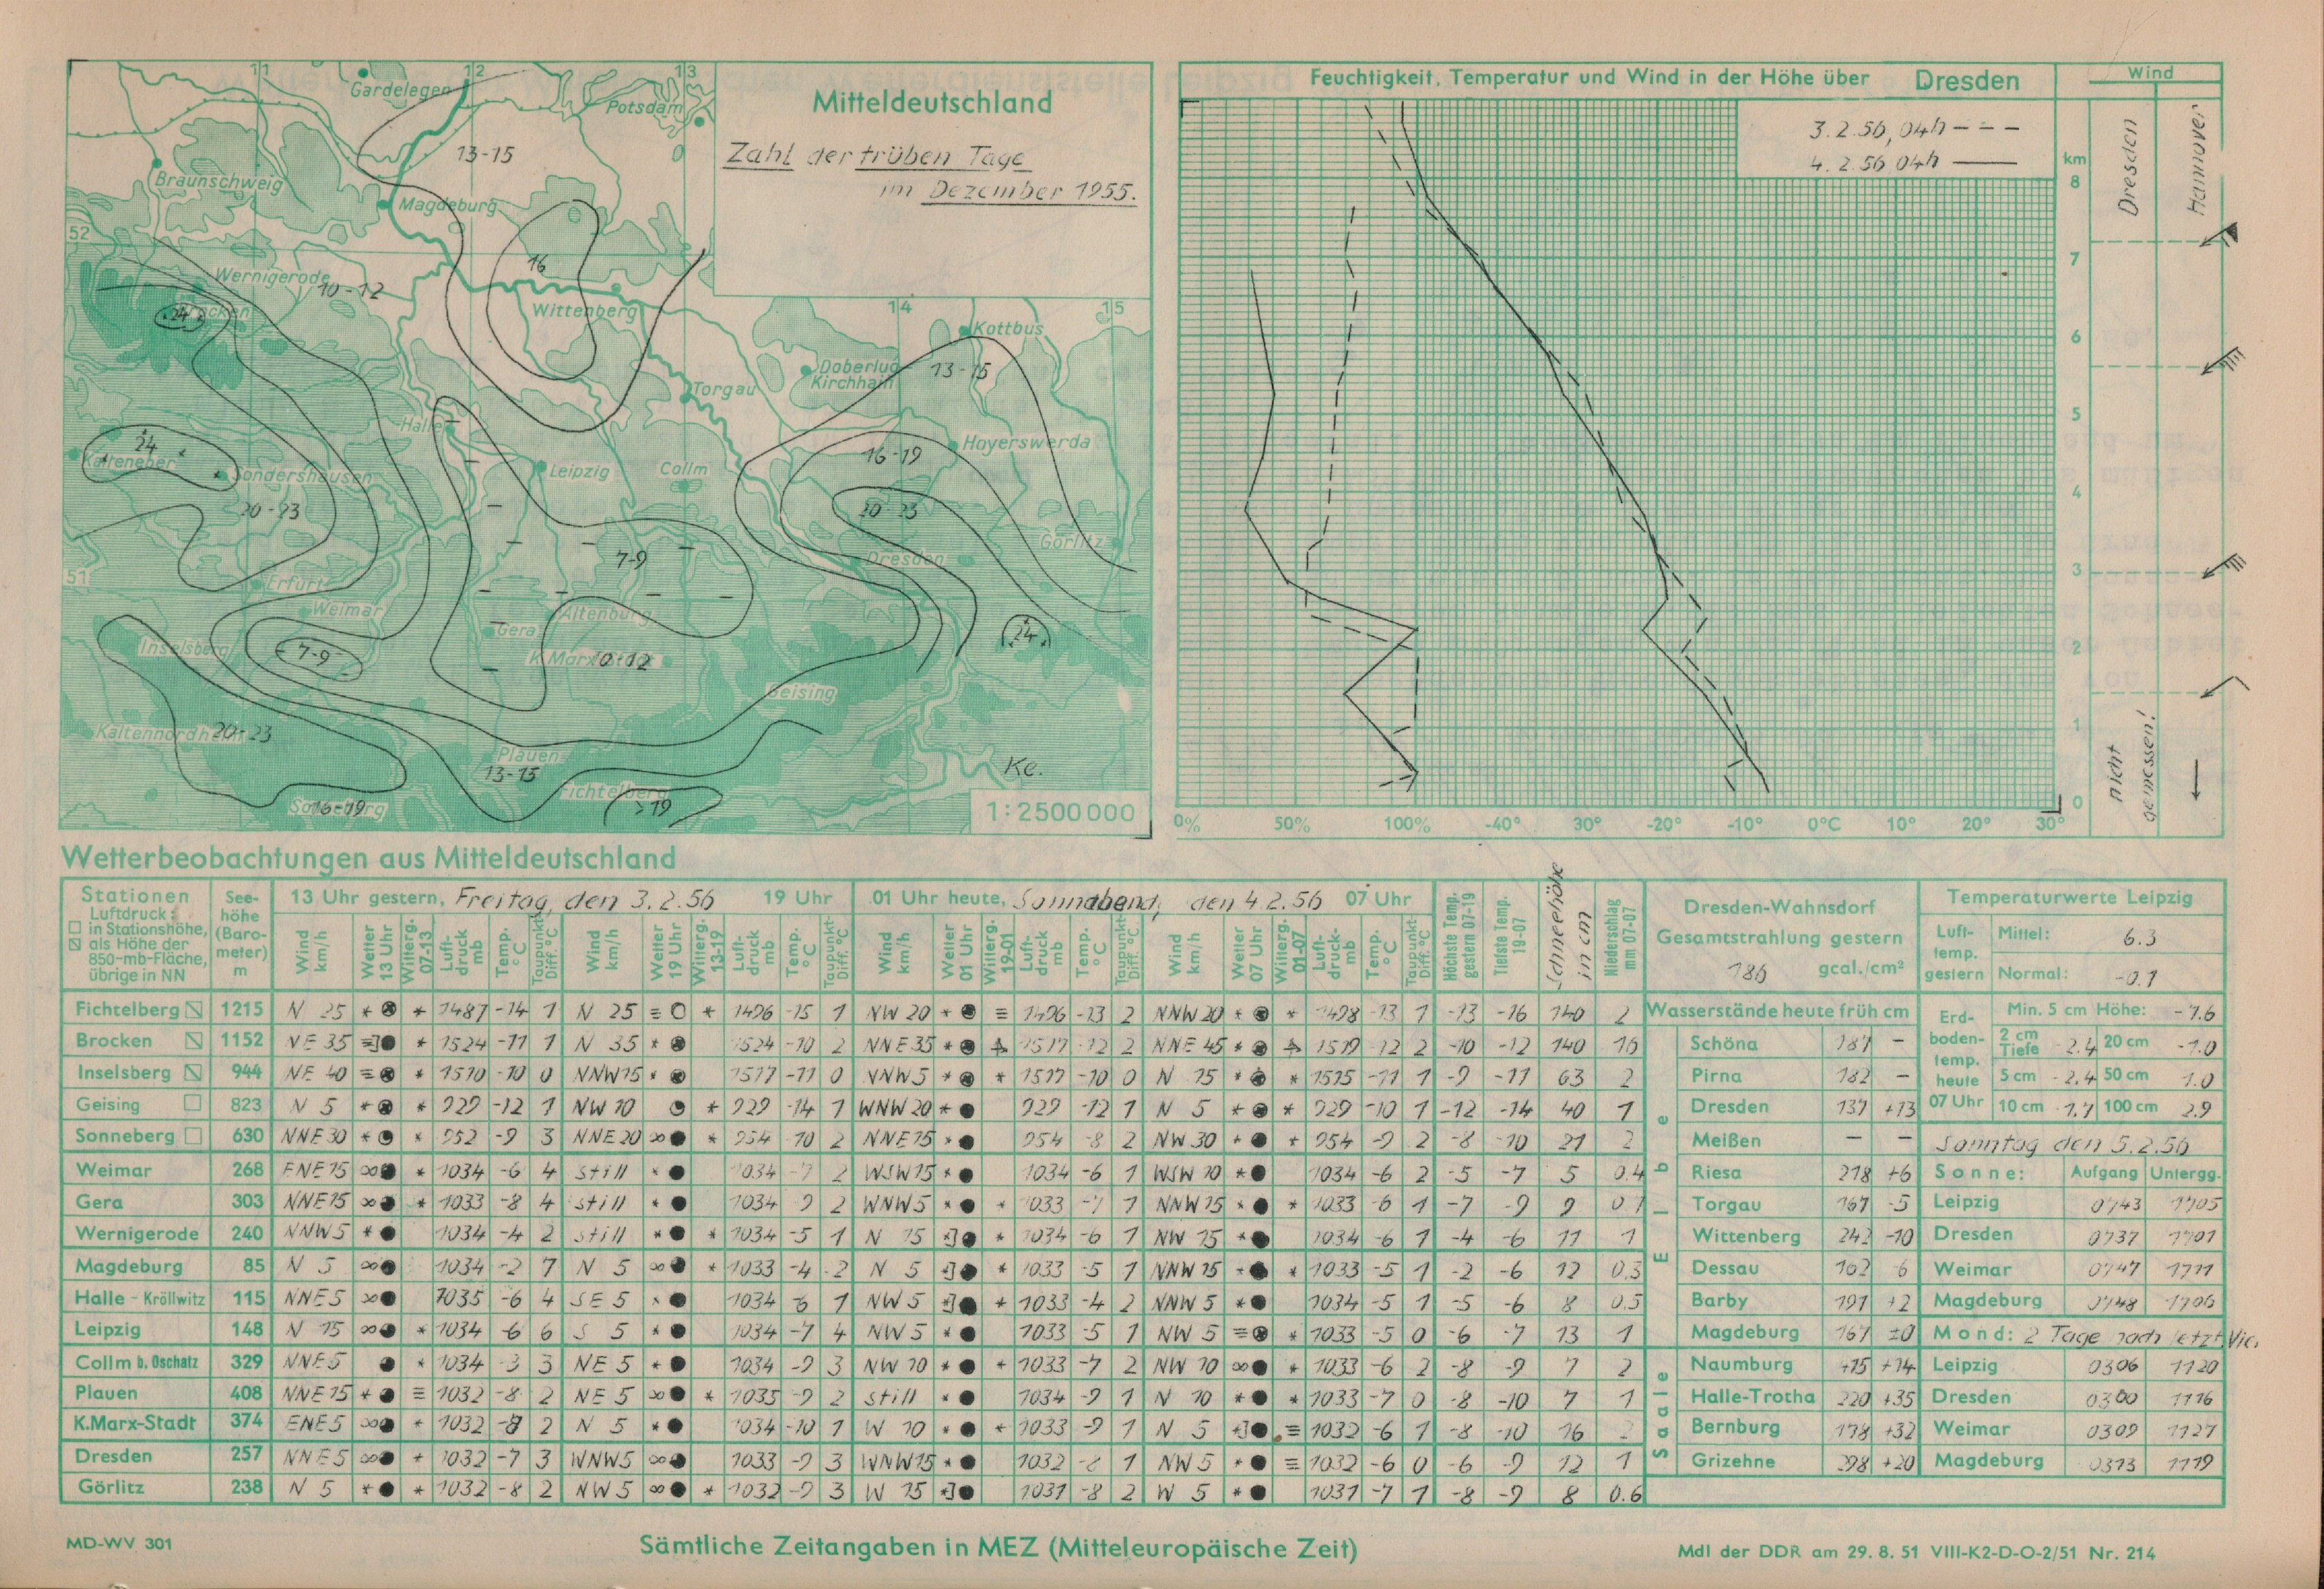 Mitteldeutschland
Zahl der trüben Tage
im Dezember 1955.
11 12 13
Gardelegen
Potsdam
13-15
Braunschweig
Magdeburg
52
16
Wernigerode
10-12
Wittenberg
14 15
Brocken
24
Kottbus
Doberlug
Kirchhain
13-15
Torgau
Halle
Hoyerswerda
24
Kalteneber
Sondershausen
Leipzig
Collm
16-19
20-23
20-23
Görlitz
7-9
Dresden
51
Erfurt
Weimar
Altenburg
Gera
24
Inselsberg
7-9
K.Marx-Stadt
10-12
Geising
Kaltennordheim
20-23
Plauen
13-15
Ke.
Fichtelberg
>19
Sonneberg
16-19
1:2500000
Feuchtigkeit, Temperatur und Wind in der Höhe über Dresden
Wind
3.2.56, 04h - - -
4.2.56 04h ——
Dresden
Hannover
km
8
7
6
5
4
3
2
1
0
nicht gemessen!
0% 50% 100% -40° 30° -20° -10° 0°C 10° 20° 30°
Wetterbeobachtungen aus Mitteldeutschland
Stationen
Luftdruck:
in Stationshöhe,
als Höhe der
850-mb-Fläche,
übrige in NN
See-
höhe
(Baro-
meter)
m
13 Uhr gestern, Freitag, den 3.2.56 19 Uhr
01 Uhr heute, Sonnabend, den 4 2.56 07 Uhr
Wind km/h
Wetter 13 Uhr
Witterg. 07-13
Luft-druck mb
Temp. °C
Taupunkt-Diff. °C
Wind km/h
Wetter 19 Uhr
Witterg. 13-19
Luft-druck mb
Temp. °C
Taupunkt-Diff. °C
Wind km/h
Wetter 01 Uhr
Witterg. 19-01
Luft-druck mb
Temp. °C
Taupunkt-Diff. °C
Wind km/h
Wetter 07 Uhr
Witterg. 01-07
Luft-druck mb
Temp. °C
Taupunkt-Diff. °C
Höchste Temp. gestern 07-19
Tiefste Temp. 19-07
Schneehöhe in cm
Niederschlag mm 07-07
Fichtelberg 1215 N 25 1487 -14 1 N 25 1496 -15 1 NW 20 1496 -13 2 NNW 20 1498 -13 1 -13 -16 140 2
Brocken 1152 NE 35 1524 -11 1 N 35 1524 -10 2 NNE 35 1517 -12 2 NNE 45 1519 -12 2 -10 -12 140 16
Inselsberg 944 NE 40 1510 -10 0 NNW 15 1517 -11 0 NNW 5 1517 -10 0 N 15 1515 -11 1 -9 -11 63 2
Geising 823 N 5 929 -12 1 NW 10 929 -14 1 WNW 20 929 -12 1 N 5 929 -10 1 -12 -14 40 1
Sonneberg 630 NNE 30 952 -9 3 NNE 20 954 -10 2 NNE 15 954 -8 2 NW 30 954 -9 2 -8 -10 21 2
Weimar 268 ENE 15 1034 -6 4 still 1034 -7 2 WSW 15 1034 -6 1 WSW 10 1034 -6 2 -5 -7 5 0.4
Gera 303 NNE 15 1033 -8 4 still 1034 -9 2 WNW 5 1033 -7 1 NNW 15 1033 -6 1 -7 -9 9 0.1
Wernigerode 240 NNW 5 1034 -4 2 still 1034 -5 1 N 15 1034 -6 1 NW 15 1034 -6 1 -4 -6 11 1
Magdeburg 85 N 5 1034 -2 7 N 5 1033 -4 2 N 5 1033 -5 1 NNW 15 1033 -5 1 -2 -6 12 0.3
Halle - Kröllwitz 115 NNE 5 1035 -6 4 SE 5 1034 6 1 NW 5 1033 -4 2 NNW 5 1034 -5 1 -5 -6 8 0.5
Leipzig 148 N 15 1034 -6 6 S 5 1034 -7 4 NW 5 1033 -5 1 NW 5 1033 -5 0 -6 -7 13 1
Collm b. Oschatz 329 NNE 5 1034 -3 3 NE 5 1034 -9 3 NW 10 1033 -7 2 NW 10 1033 -6 2 -8 -9 7 2
Plauen 408 NNE 15 1032 -8 2 NE 5 1035 -9 2 still 1034 -9 1 N 10 1033 -7 0 -8 -10 7 1
K.Marx-Stadt 374 ENE 5 1032 -8 2 N 5 1034 -10 1 W 10 1033 -9 1 N 5 1032 -6 1 -8 -10 16 2
Dresden 257 NNE 5 1032 -7 3 WNW 5 1033 -9 3 WNW 15 1032 -8 1 NW 5 1032 -6 0 -6 -9 12 1
Görlitz 238 N 5 1032 -8 2 NW 5 1032 -9 3 W 15 1031 -8 2 W 5 1031 -7 1 -8 -9 8 0.6
Dresden-Wahnsdorf
Gesamtstrahlung gestern
186 gcal./cm²
Wasserstände heute früh cm
Elbe
Schöna 187 -
Pirna 182 -
Dresden 137 +13
Meißen - -
Riesa 218 +6
Torgau 167 -5
Wittenberg 242 -10
Dessau 162 6
Barby 191 +2
Magdeburg 167 ±0
Saale
Naumburg +15 +14
Halle-Trotha 220 +35
Bernburg 178 +32
Grizehne 298 +20
Temperaturwerte Leipzig
Luft-
temp.
gestern
Mittel: 6.3
Normal: -0.1
Erd-
boden-
temp.
heute
07 Uhr
Min. 5 cm Höhe: -7.6
2 cm Tiefe -2.4 20 cm -1.0
5 cm -2.4 50 cm 1.0
10 cm -1.7 100 cm 2.9
Sonntag den 5.2.56
Sonne: Aufgang Untergg.
Leipzig 0743 1705
Dresden 0737 1701
Weimar 0747 1711
Magdeburg 0748 1706
Mond: 2 Tage nach letzt. Vie.
Leipzig 0306 1120
Dresden 0300 1116
Weimar 0309 1127
Magdeburg 0313 1119
MD-WV 301
Sämtliche Zeitangaben in MEZ (Mitteleuropäische Zeit)
MdI der DDR am 29. 8. 51 VIII-K2-D-O-2/51 Nr. 214